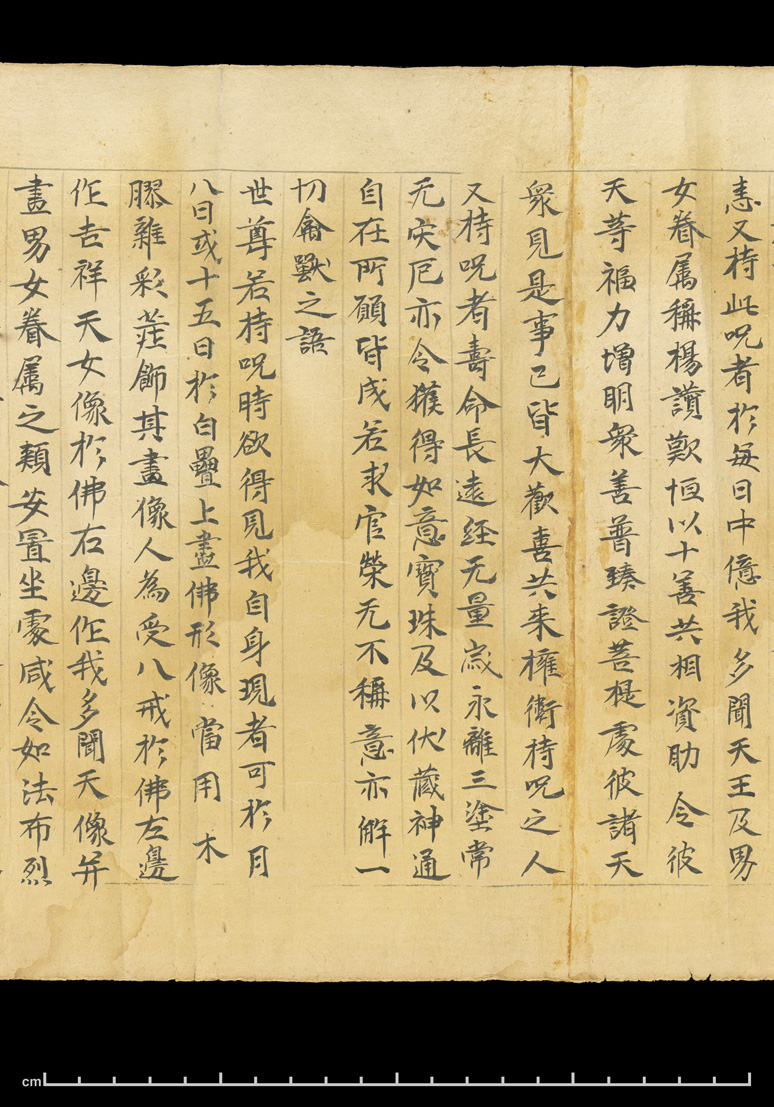 恚又持此呪者於每日中億我多聞天王及男
女眷属稱楊讚歎恒以十善共相資助令彼
天等福力增明衆善普臻證菩提處彼諸天
衆見是事已皆大歡喜共来擁衛持呪之人
又持呪者壽命長遠經无量歳永離三塗常
无灾厄亦令獲得如意寶珠及以伏藏神通
自在所願皆成若求官榮无不稱意亦解一
切禽獸之語
世尊若持呪時欲得見我自身現者可於月
八日或十五日於白疊上畫佛形像當用木
膠雜彩莊飾其畫像人為受八戒於佛左邊
作吉祥天女像於佛右邊作我多聞天像并
畫男女眷属之類安置坐處咸令如法布烈
cm